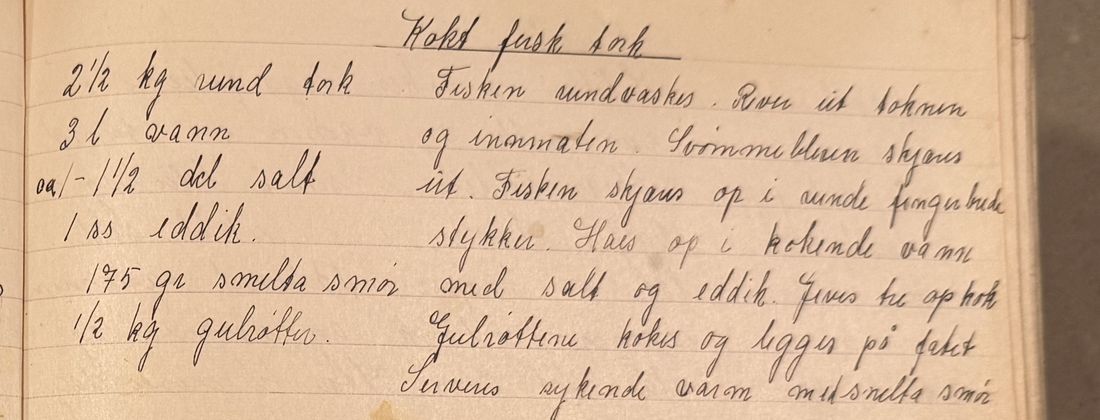 Kokt fersk tork
2 1/2 kg rund tork
3 l vann
ca 1 - 1 1/2 del salt
1 ss eddik.
175 gr smelta smør
1/2 kg gulrøtter.
Fisken rundvaskes. River ut toknen
og innmaten. Svømmebleren skjæres
ut. Fisken skjæres op i runde fingerbrede
stykker. Haes op i kokende vann
med salt og eddik. Gives tre opkok
Gulrøttene kokes og legges på fatet
Serveres rykende varm med smelta smør